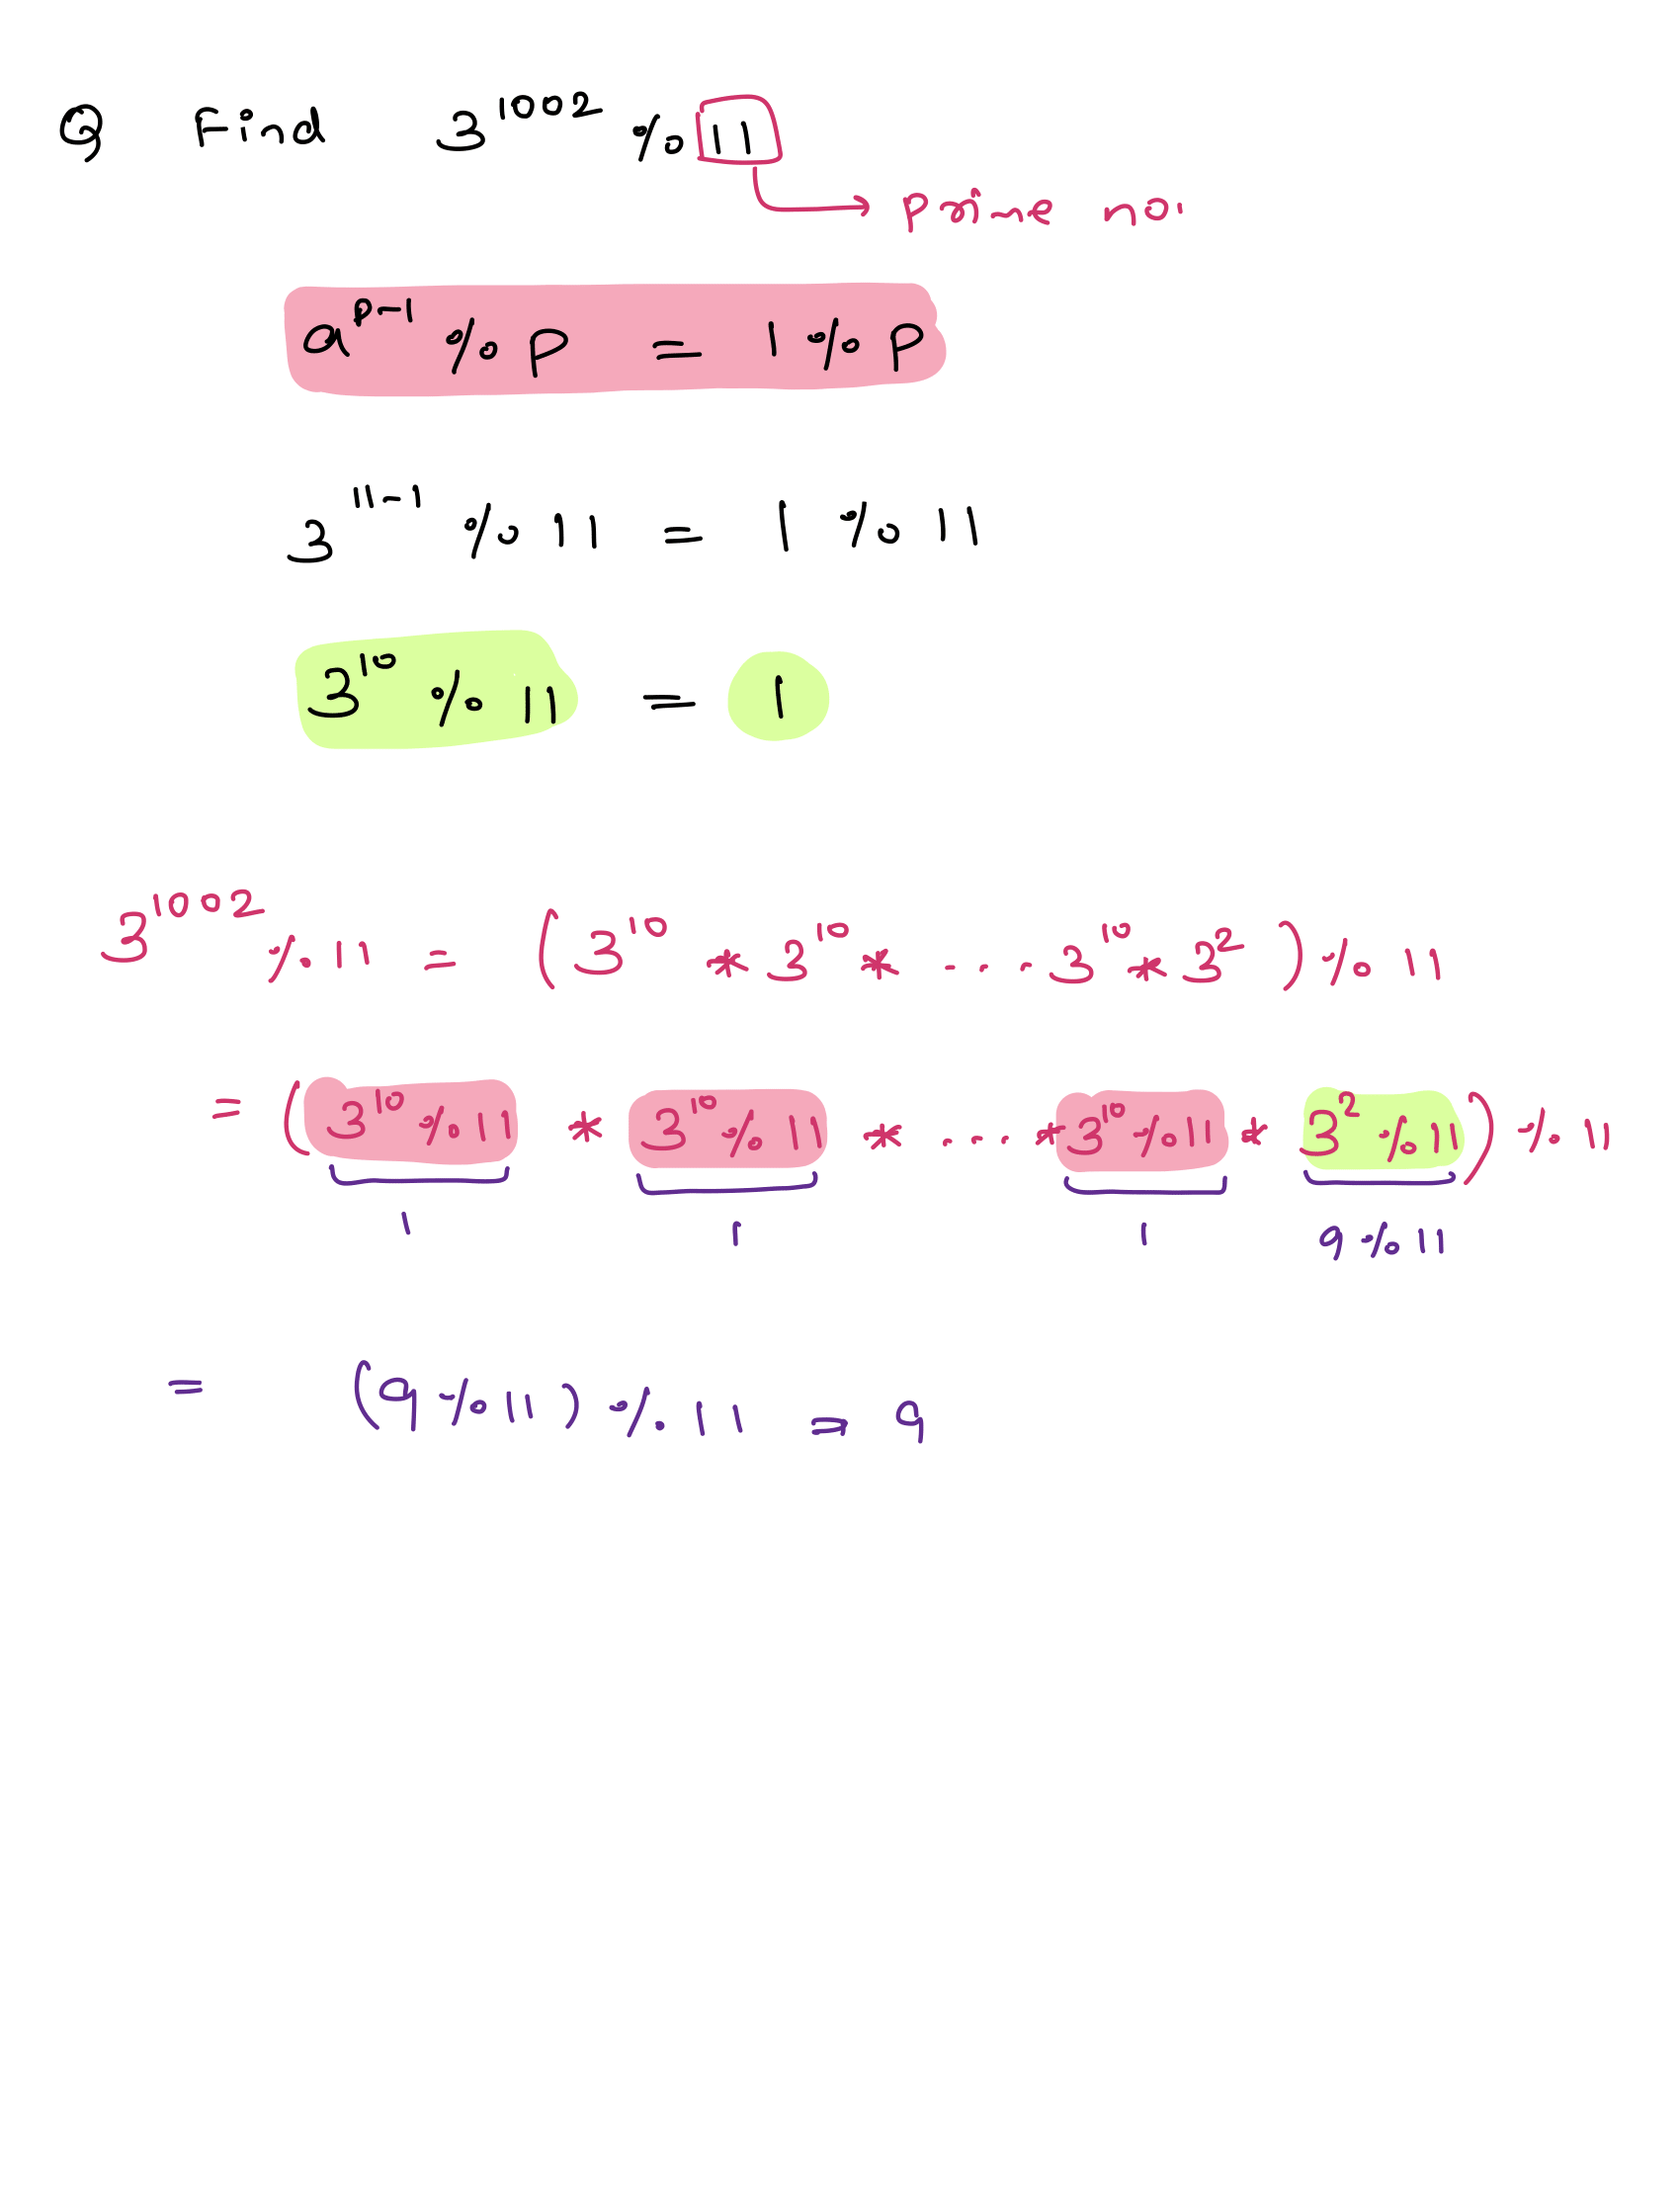 Q Find 3^1002 % 11
prime no.
a^p-1 % p = 1 % p
3^11-1 % 11 = 1 % 11
3^10 % 11 = 1
3^1002 % 11 = (3^10 * 3^10 * .... 3^10 * 3^2) % 11
= (3^10 % 11 * 3^10 % 11 * .... * 3^10 % 11 * 3^2 % 11) % 11
1 1 1 9 % 11
= (9 % 11) % 11 = 9